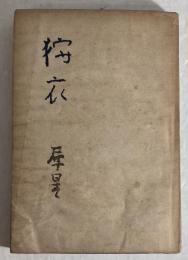 狩衣
犀星